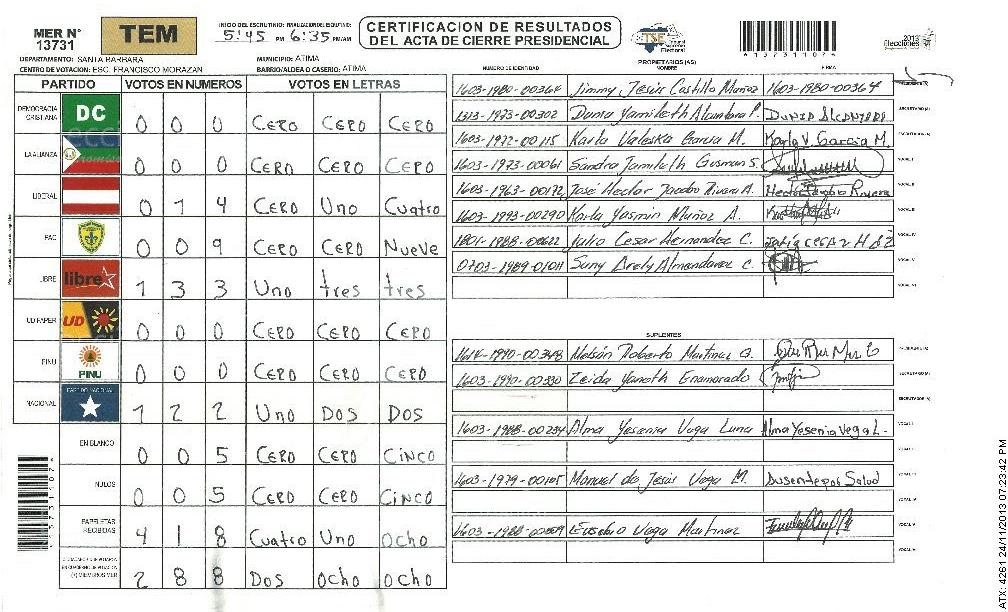 MER N° 13731
TEM
INICIO DEL ESCRUTINIO: FINALIZACION DEL ESCRUTINIO:
5:45 PM 6:35 PM/AM
CERTIFICACION DE RESULTADOS
DEL ACTA DE CIERRE PRESIDENCIAL
TSE
Tribunal Supremo Electoral
2013 Elecciones
4137311076
DEPARTAMENTO: SANTA BARBARA
MUNICIPIO: ATIMA
CENTRO DE VOTACION: ESC. FRANCISCO MORAZAN
BARRIO/ALDEA O CASERIO: ATIMA
PARTIDO VOTOS EN NUMEROS VOTOS EN LETRAS
DEMOCRACIA CRISTIANA DC 0 0 0 CERO CERO CERO
LA ALIANZA 0 0 0 CERO CERO CERO
LIBERAL 0 1 4 CERO UNO CUATRO
PAC 0 0 9 CERO CERO NUEVE
LIBRE libre 1 3 3 UNO tres tres
UD FAPER UD 0 0 0 CERO CERO CERO
PINU PINU 0 0 0 CERO CERO CERO
NACIONAL PARTIDO NACIONAL 1 2 2 UNO DOS DOS
EN BLANCO 0 0 5 CERO CERO CINCO
NULOS 0 0 5 CERO CERO CINCO
PAPELETAS RECIBIDAS 4 1 8 CUATRO UNO OCHO
(+) MIEMBROS MER 2 8 8 DOS OCHO OCHO
PROPIETARIOS (AS)
NUMERO DE IDENTIDAD NOMBRE FIRMA
1603-1980-00364 Jimmy Jesús Castillo Muñoz 1603-1980-00364
1313-1973-00302 Dunia Yamileth Alcantara P. DUNIA ALCANTARA
1603-1972-00115 Karla Valeska Garcia M. Karla V Garcia M.
1603-1973-00061 Sandra Jamileth Gusman S.
1603-1963-00172 José Hector Jacobo Rivera A. Hector Jacobo Rivera
1603-1993-00290 Karla Yasmin Muñoz A.
1801-1988-00622 Julio Cesar Hernandez C.
0703-1989-01011 Suny Arely Almendarez C.
SUPLENTES
1614-1990-00348 Nelsón Roberto Martinez G.
1603-1990-00330 Zeida Yaneth Enamorado
1603-1988-00234 Alma Yesenia Vega Luna Alma Yesenia Vega L.
1603-1979-00105 Manuel de Jesús Vega M. Ausente por Salud
Eusebio Vega Martinez
ATX: 4261 24/11/2013 07:23:42 PM